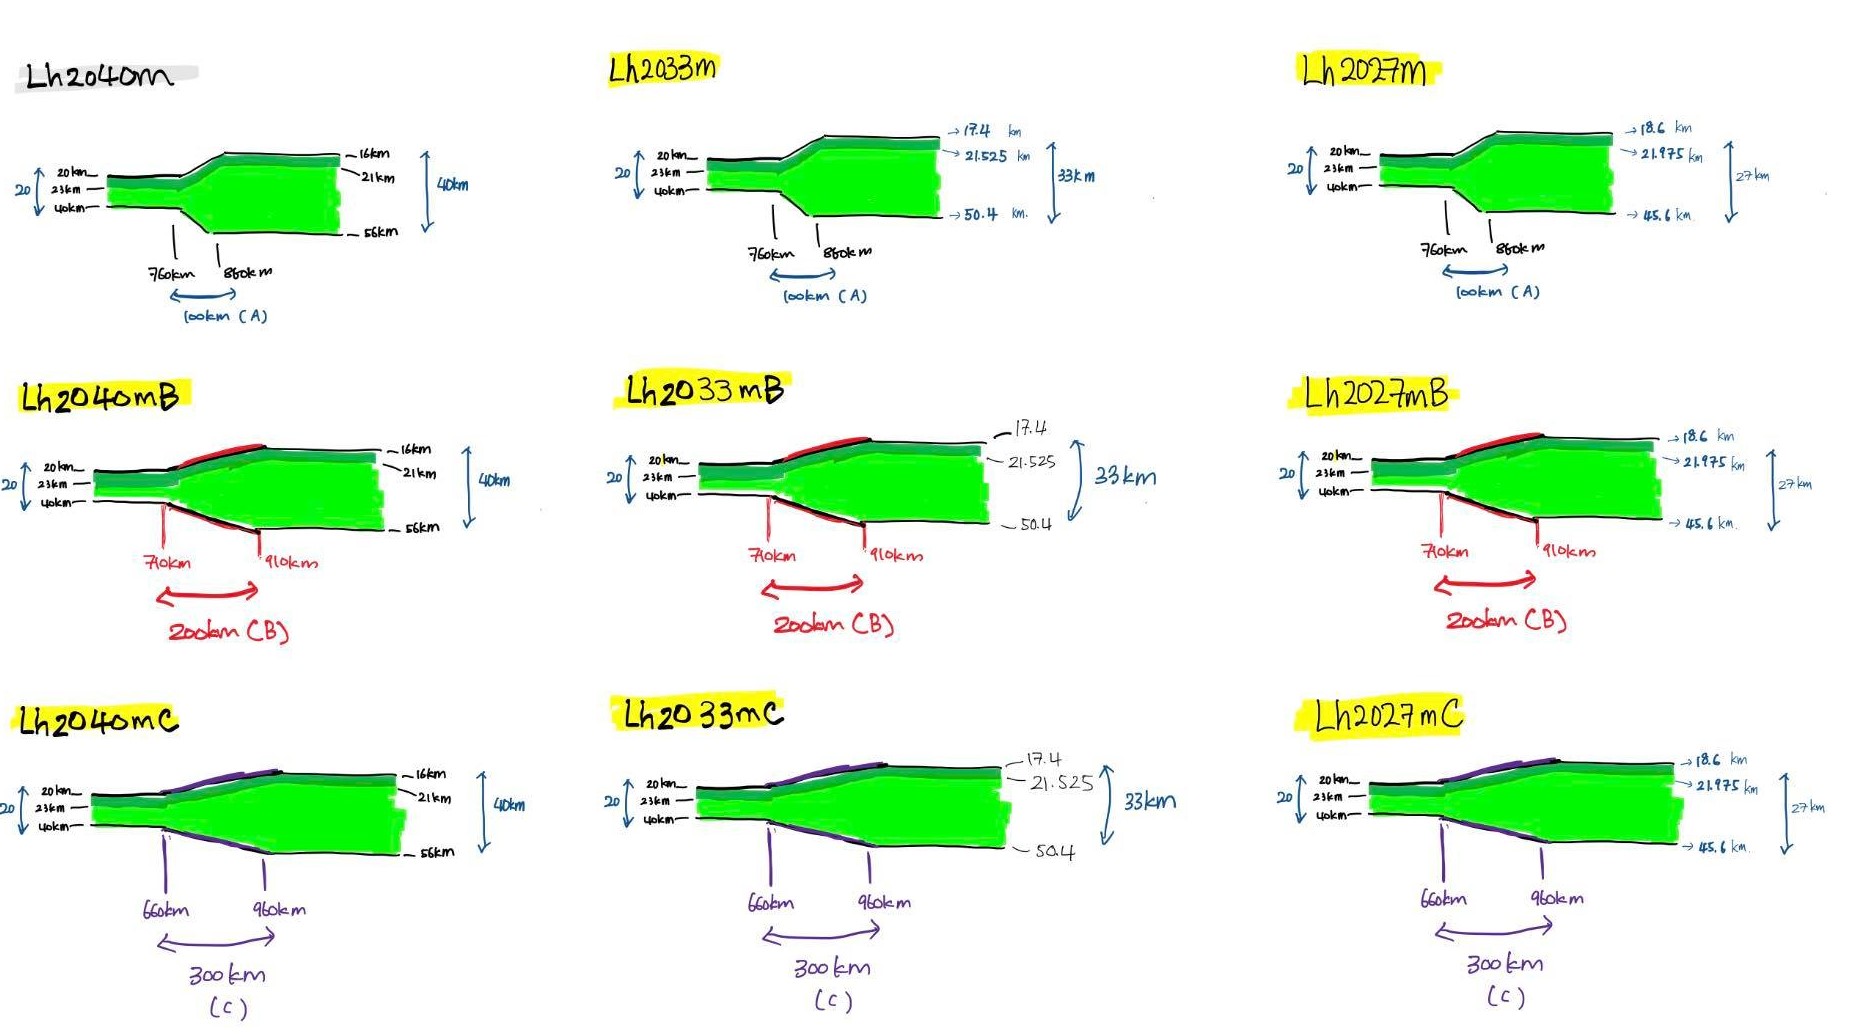 Lh2040m
20km
23km
40km
20
16km
21km
56km
40km
760km
860km
100km (A)
Lh2033m
20km
23km
40km
20
17.4 km
21.525 km
50.4 km.
33km
760km
860km
100km (A)
Lh2027m
20km
23km
40km
20
18.6 km
21.975 km
45.6 km
27km
760km
860km
100km (A)
Lh2040mB
20km
23km
40km
20
16km
21km
56km
40km
710km
910km
200km (B)
Lh2033mB
20km
23km
40km
20
17.4
21.525
50.4
33km
710km
910km
200km (B)
Lh2027mB
20km
23km
40km
20
18.6 km
21.975 km
45.6 km.
27km
710km
910km
200km (B)
Lh2040mC
20km
23km
40km
20
16km
21km
56km
40km
660km
960km
300km
(C)
Lh2033mC
20km
23km
40km
20
17.4
21.525
50.4
33km
660km
960km
300km
(C)
Lh2027mC
20km
23km
40km
20
18.6 km
21.975 km
45.6 km.
27km
660km
960km
300km
(C)